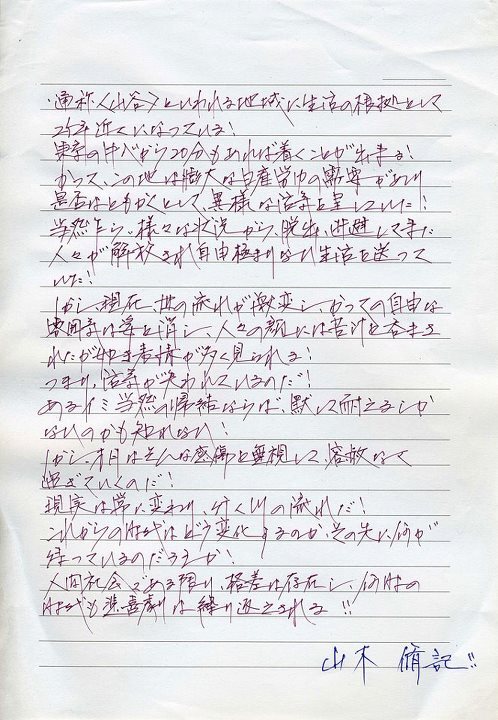 通称〈山谷〉といわれる地域に生活の根拠として
25年近くになっている!
東京の中心から20分もあれば着くことが出来る!
かつて、この地は膨大な日産労働の需要があり
是否はともかくとして、異様な活気を呈していた!
当然乍ら、様々な状況から、脱出、逃避して来た
人々が解放され自由極まりない生活を送って
いた!
しかし、現在、世の流れが激変し、かつての自由な
雰囲気は等と消し、人々の顔には苦汁を呑まさ
れたが如き表情が多く見られる!
つまり、活気が失われているのだ!
あるイミ当然の帰結ならば、黙して耐えるしか
ないのかも知れない!
しかし、月日はそんな感傷を無視して、容赦なく
過ぎていくのだ!
現実は常に変わり、行く川の流れだ!
これからの時代はどう変化するのか、その先に何が
待っているのだろうか!
人間社会である限り、格差は存在し、何時の
時代も悲喜劇は繰り返される!!
山木 脩記!!